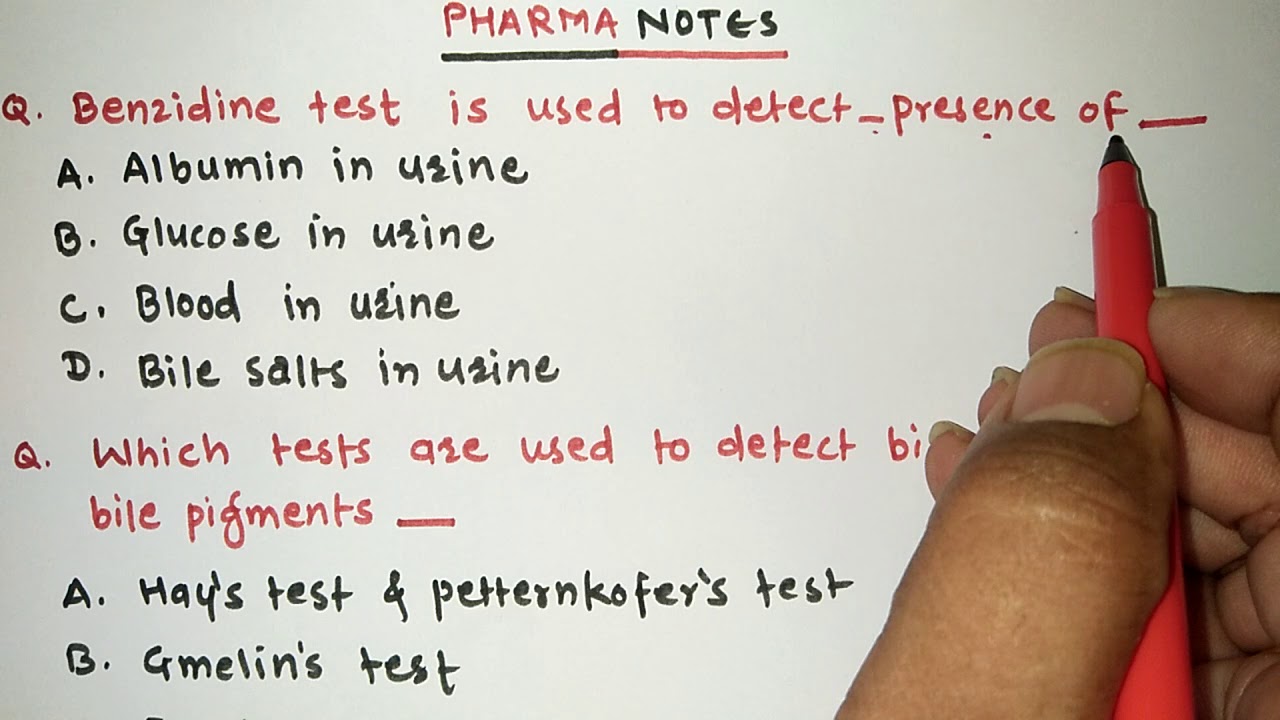 PHARMA NOTES
Q. Benzidine test is used to detect - presence of __
A. Albumin in urine
B. Glucose in urine
C. Blood in urine
D. Bile salts in urine
Q. Which tests are used to detect
bile pigments __
A. Hay's test & petternkofer's test
B. Gmelin's test